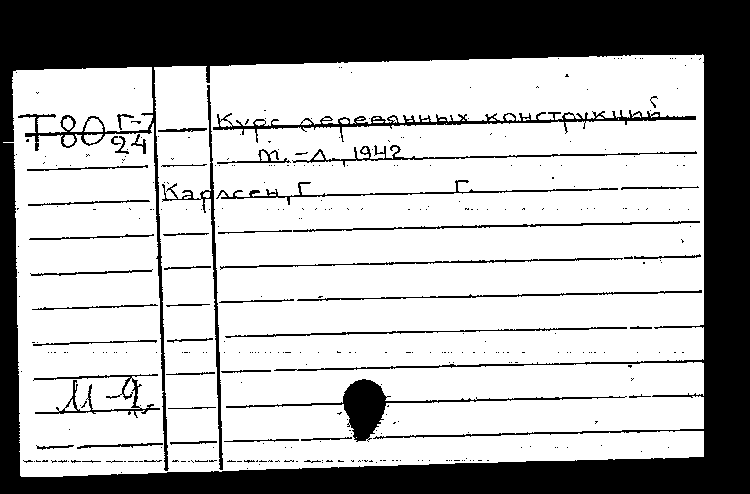 Т80 Г-7
24
Курс деревянных конструкций
М.-Л., 1942.
Карлсен, Г. Г.